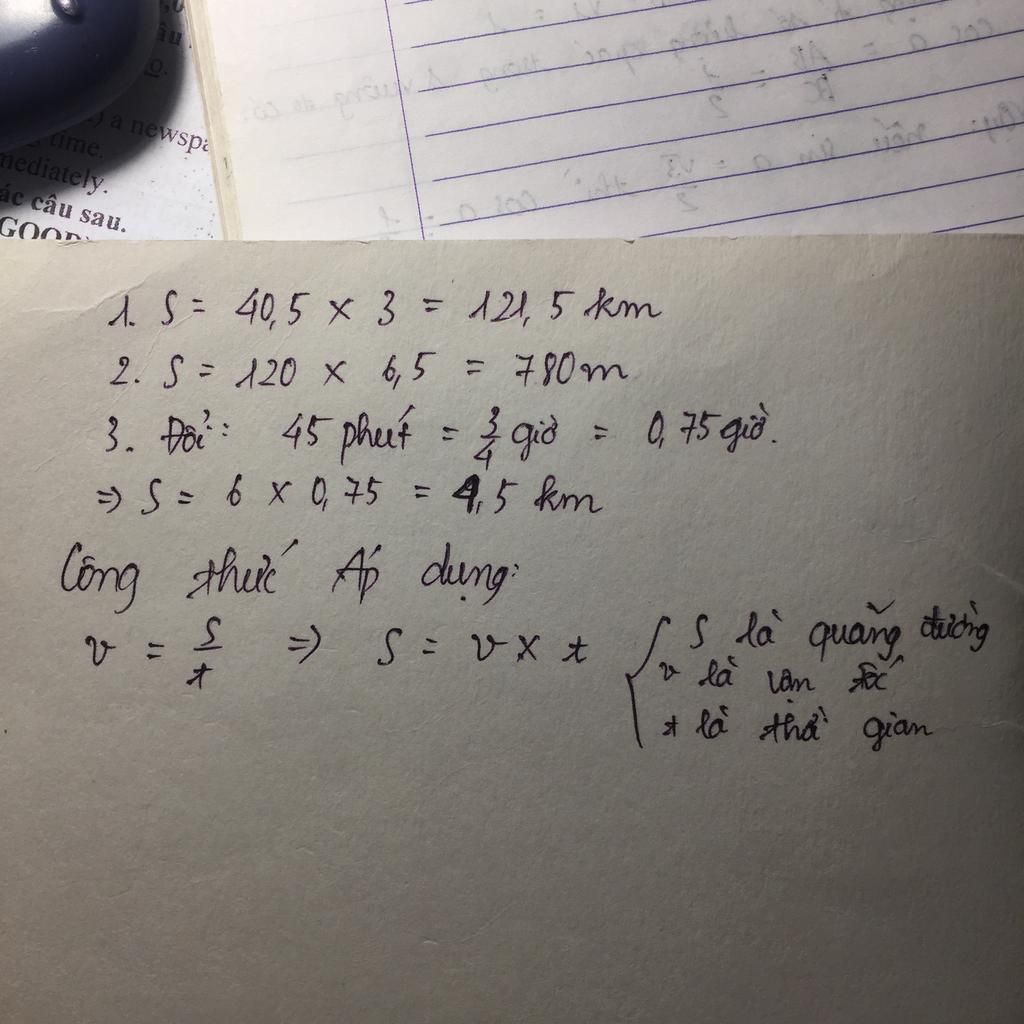 a newspa
time.
mediately.
ác câu sau.
1. S = 40,5 x 3 = 121,5 km
2. S = 120 x 6,5 = 780m
3. Đổi: 45 phút = 3/4 giờ = 0,75 giờ.
=> S = 6 x 0,75 = 4,5 km
Công thức Áp dụng:
v = S/t => S = v x t { S là quãng đường
v là vận tốc
t là thời gian